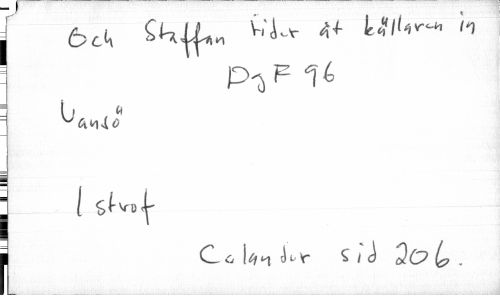 Och Staffan rider åt källaren in
DgF 96
Vansö
1 strof
Calander sid 206.